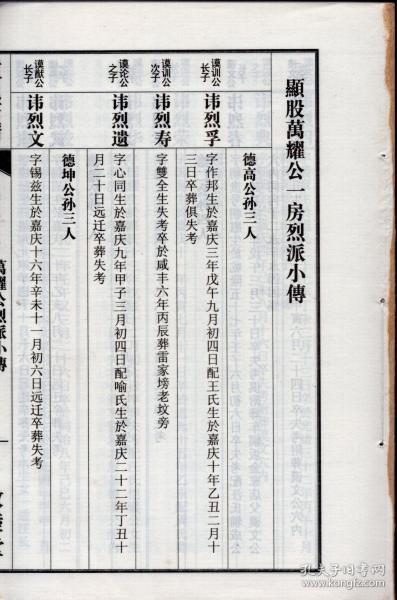 顯股萬耀公一房烈派小傳
德高公孙三人
谟训公长子
讳烈孚
字作邦生於嘉庆三年戊午九月初四日配王氏生於嘉庆十年乙丑二月十
三日卒葬俱失考
谟训公次子
讳烈寿
字雙全生失考卒於咸丰六年丙辰葬雷家塝老坟旁
谟论公之子
讳烈遗
字心同生於嘉庆九年甲子三月初四日配喻氏生於嘉庆二十二年丁丑十
月二十日远迁卒葬失考
德坤公孙三人
谟猷公长子
讳烈文
字锡兹生於嘉庆十六年辛未十一月初六日远迁卒葬失考
萬耀公烈派小傳
一
孔夫子旧书网
www.kongfz.com